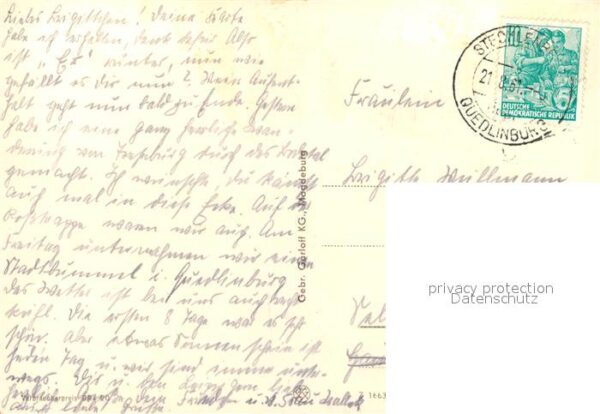 Liebes Brigittchen! Deine Karte
habe ich erhalten, dank dafür. Also
ist „Ed“ runter, nun wie
gefällt es Dir nun? Mein Aufent-
halt geht nun bald zu Ende. Gestern
habe ich eine ganz herrliche Wan-
derung von Treseburg durch das Bodetal
gemacht. Ich wünschte, du könntest
auch mal in diese Ecke. Auf der
Roßtrappe waren wir auch. Am
Freitag unternahmen wir einen
Stadtbummel i. Quedlinburg
das Wetter ist bei uns auch sehr
kühl. Die ersten 8 Tage war es sehr
schön. Aber etwas Sonnenschein ist
jeden Tag u. wir sind immer unter-
wegs. Dir u. den
Fräulein
Brigitte Wullmann
STECKLENBERG
QUEDLINBURG
DEUTSCHE
DEMOKRATISCHE REPUBLIK
Gebr. Garloff KG., Magdeburg
privacy protection
Datenschutz